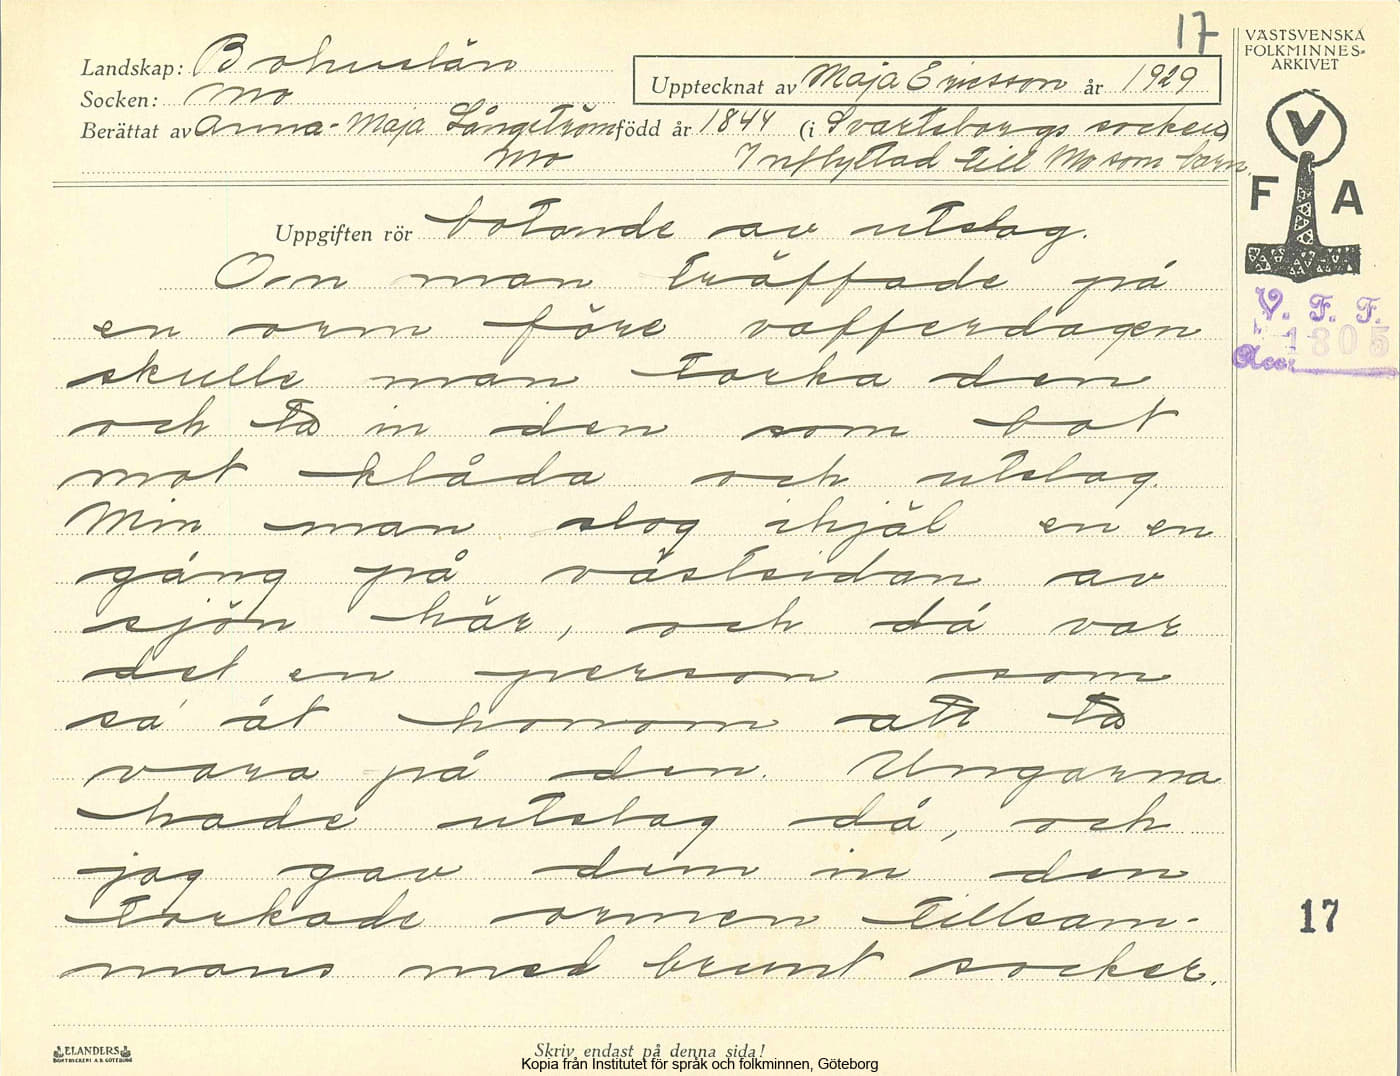 17
VÄSTSVENSKA
FOLKMINNES-
ARKIVET
Landskap: Bohuslän
Socken: Mo
Upptecknat av Maja Ericsson år 1929
Berättat av Anna-Maja Långström född år 1844 (i Svartsborgs socken)
Mo Inflyttad till Mo som barn.
V
F A
Uppgiften rör botande av utslag.
Om man träffade på
en orm före vafferdagen
skulle man torka den
och ta in den som bot
mot klåda och utslag.
Min man slog ihjäl en en
gång på västsidan av
sjön här, och då var
det en person som
sa åt honom att ta
vara på den. Ungarna
hade utslag då, och
jag gav dem in den
torkade ormen tillsam-
mans med brunt socker.
V. F. F.
1805
Acc:
17
ELANDERS
BOKTRYCKERI A.B. GÖTEBORG
Skriv endast på denna sida!
Kopia från Institutet för språk och folkminnen, Göteborg